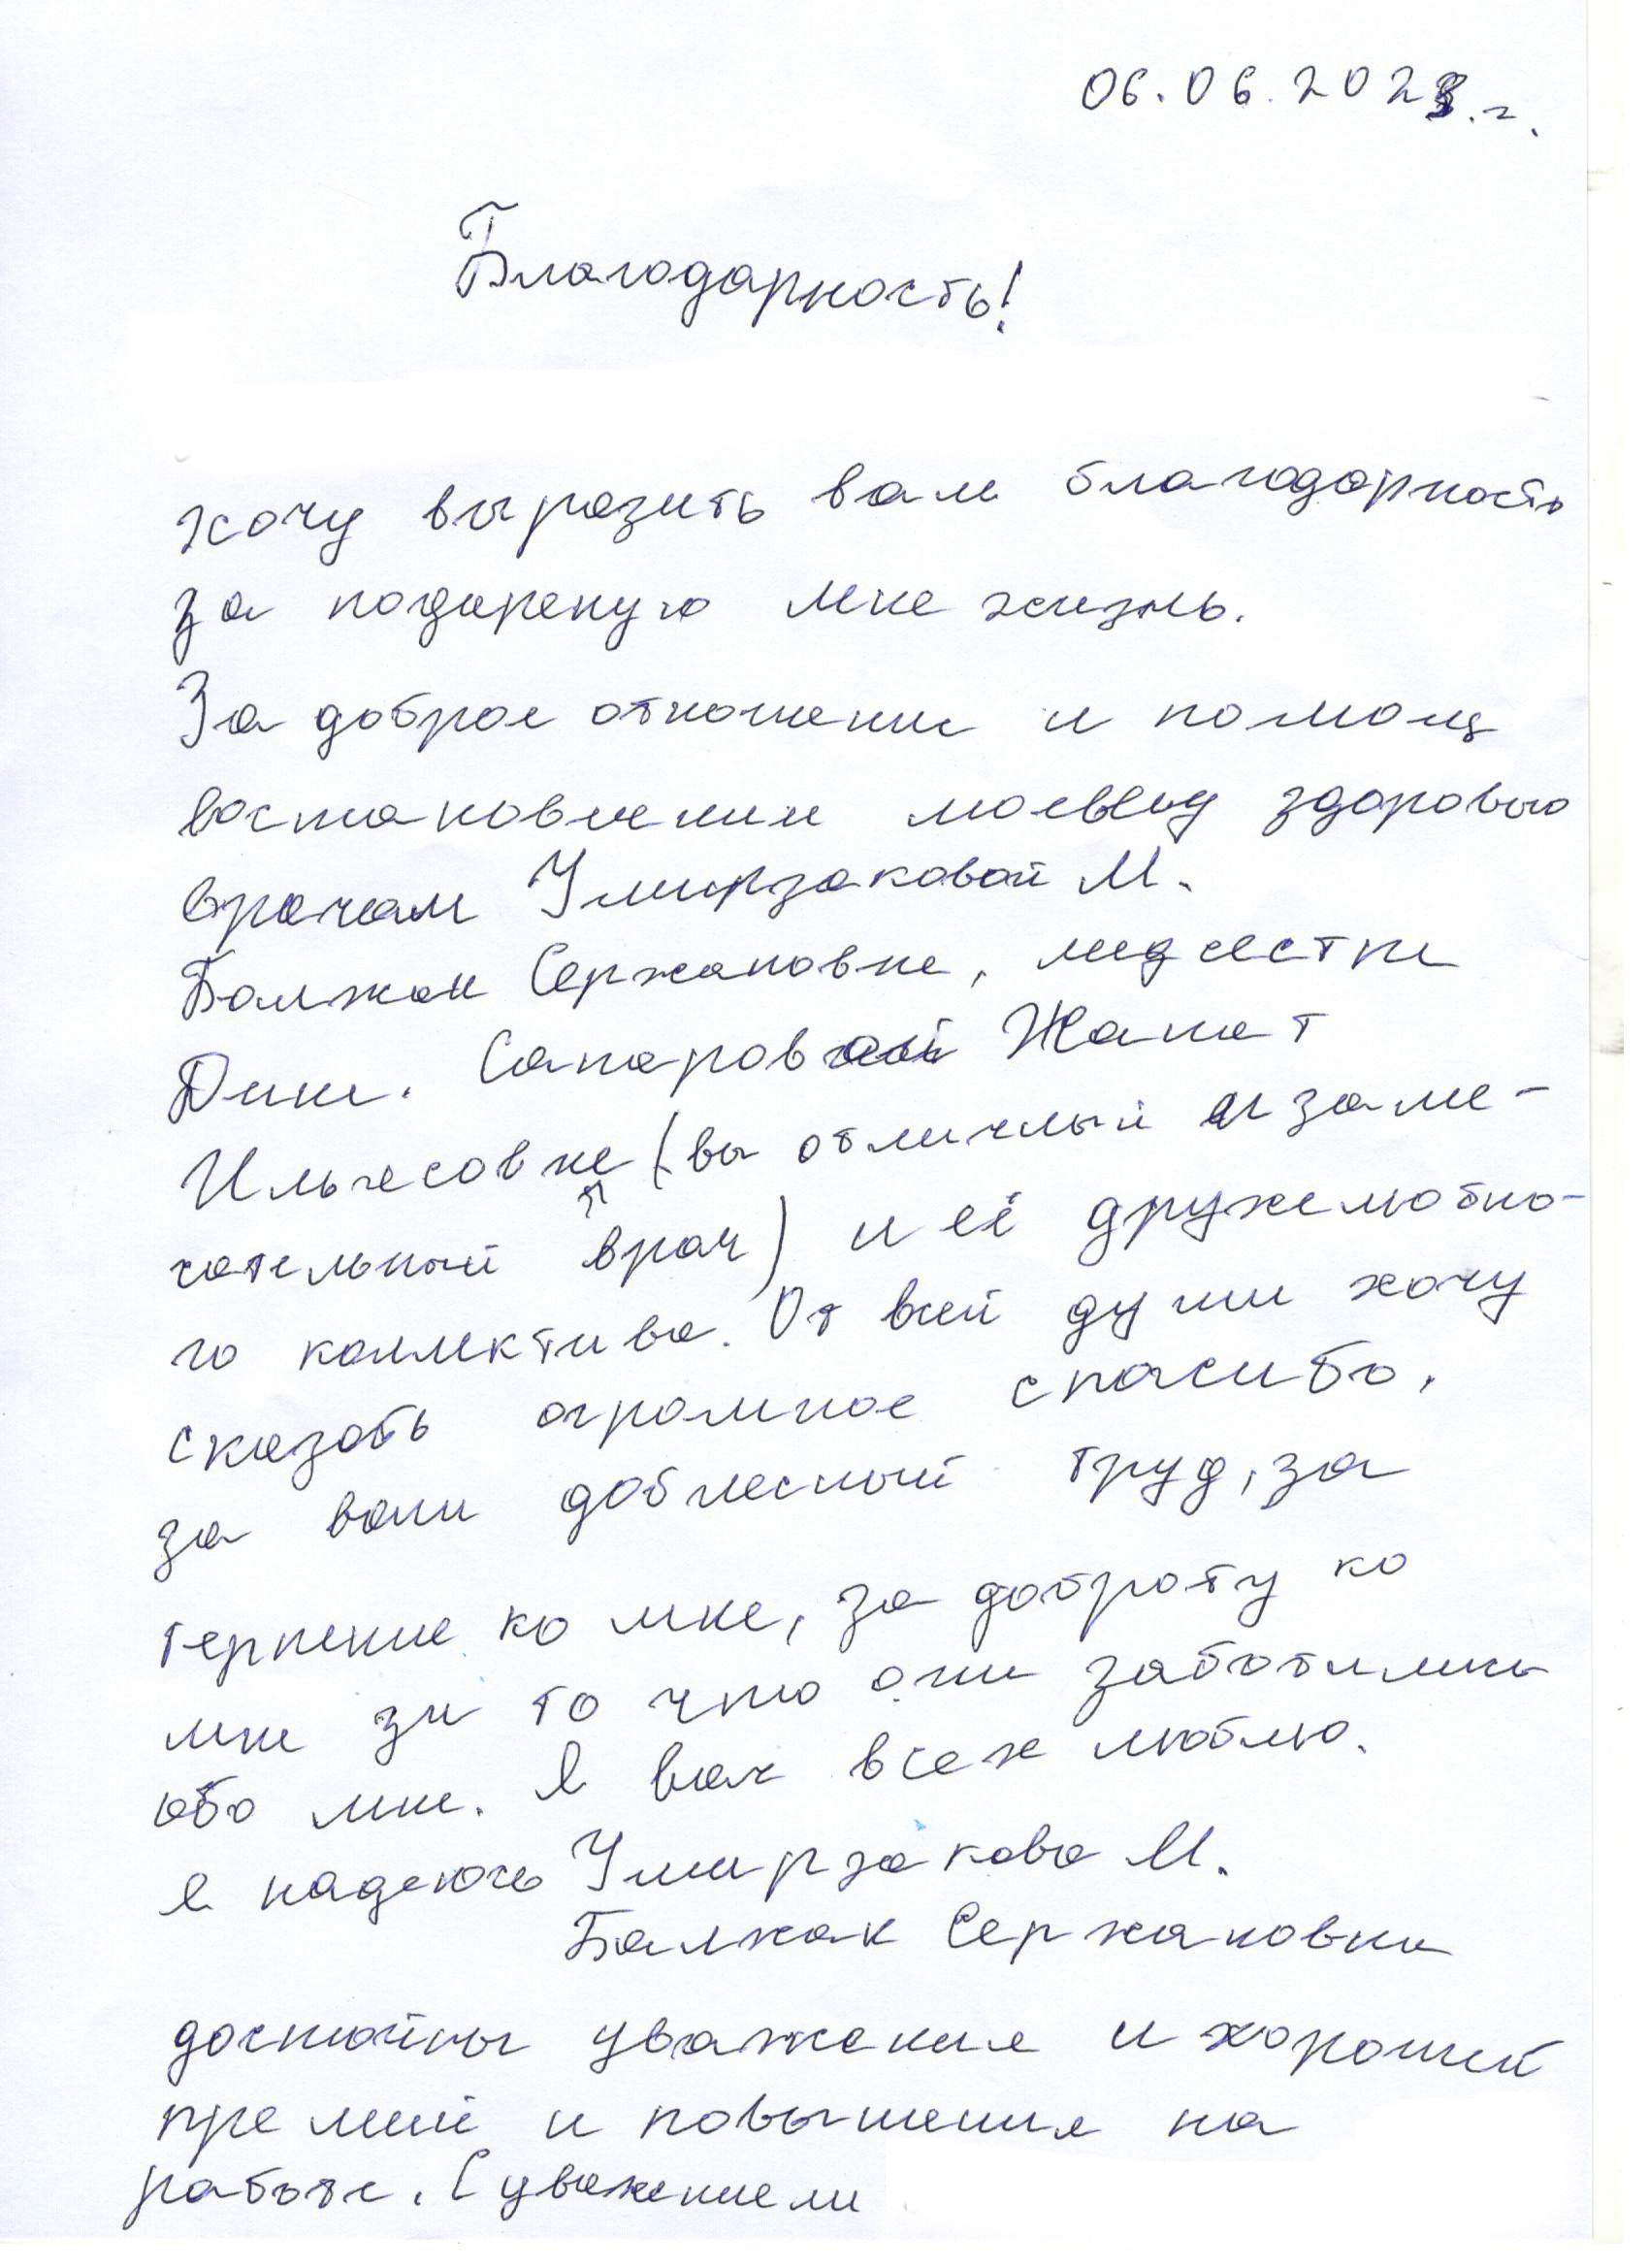 06.06.2023.г.
Благодарность!
хочу выразить вам благодарность
за подареную мне жизнь.
За доброе отношение и помощ
востановлении моему здоровью
врачам Умирзаковой М.
Балжан Сержановне, медсестре
Дине. Сапаровой Жанат
Ильчесовне (вы отличный и заме-
чательный врач) и её дружелюбно-
го коллектива. От всей души хочу
сказать огромное спасибо.
за ваш доблесный труд, за
терпение ко мне, за доброту ко
мне за то что они заботились
обо мне. Я вас всех люблю.
я надеюсь Умирзакова М.
Балжан Сержановна
достойны уважения и хорошей
премии и повышения на
работе. С уважением